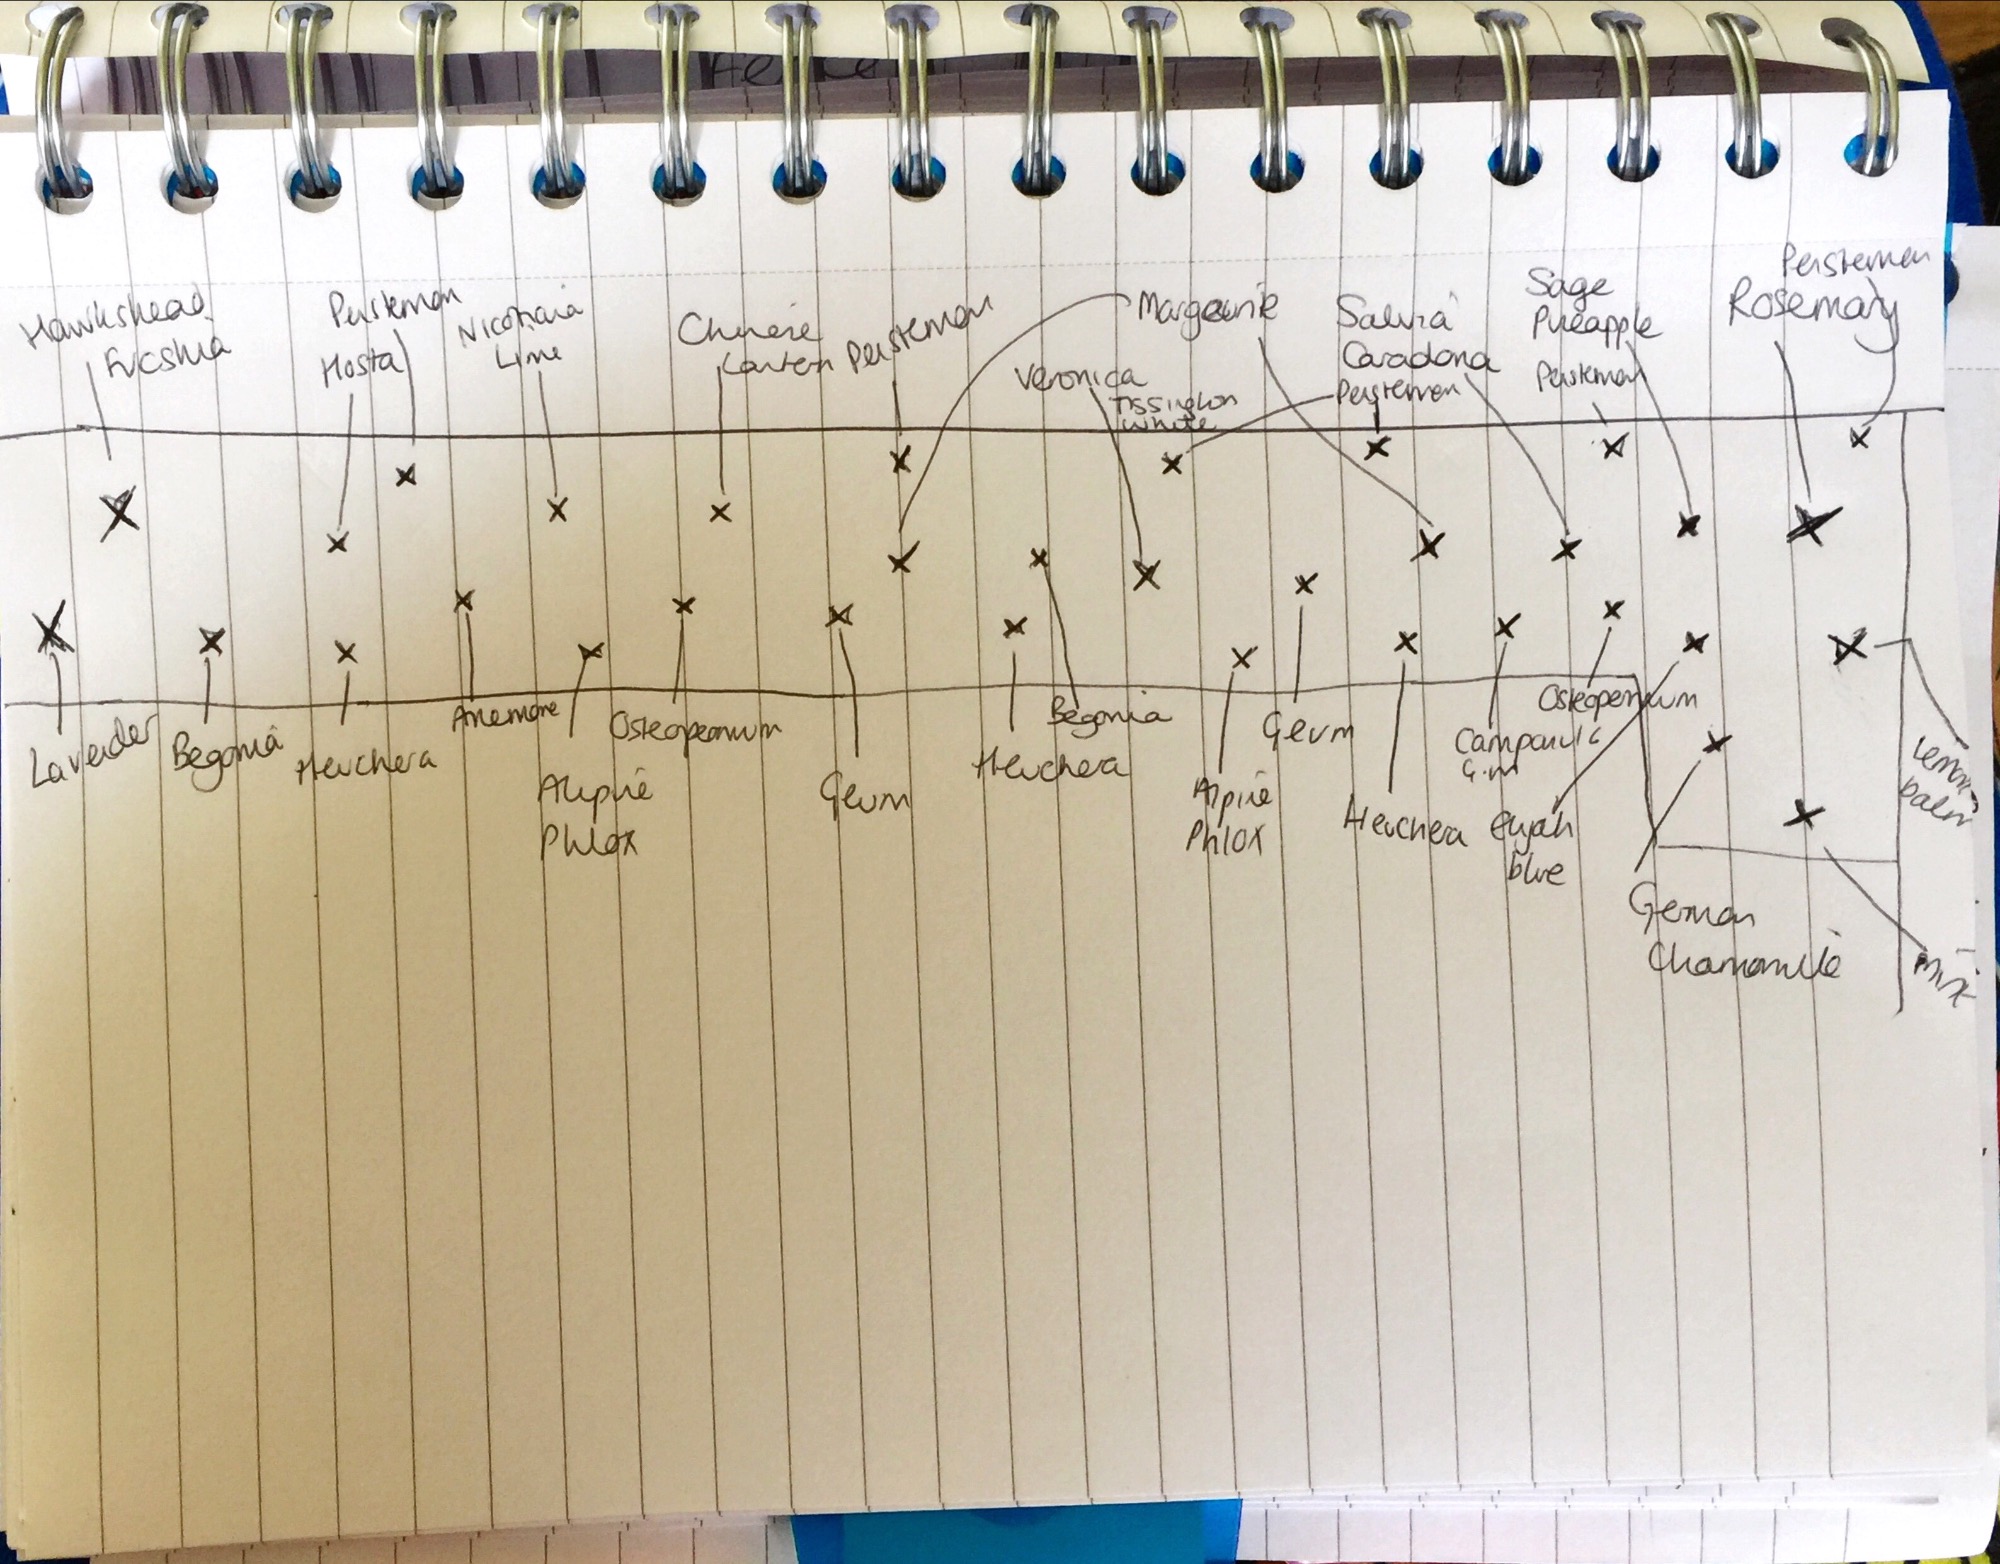 Hawkshead
Fucshia
Penstemon
Hosta
Nicotiana
Lime
Chinese
Lantern
Penstemon
Veronica
Tissington
White
Marguerite
Salvia
Caradona
Penstemon
Sage
Pineapple
Penstemon
Penstemon
Rosemary
Lavender
Begonia
Heuchera
Anemone
Alpine
Phlox
Osteopernum
Geum
Heuchera
Begonia
Alpine
Phlox
Geum
Heuchera
Campanula
Osteopernum
Elijah
blue
German
Chamomile
Lemon
balm